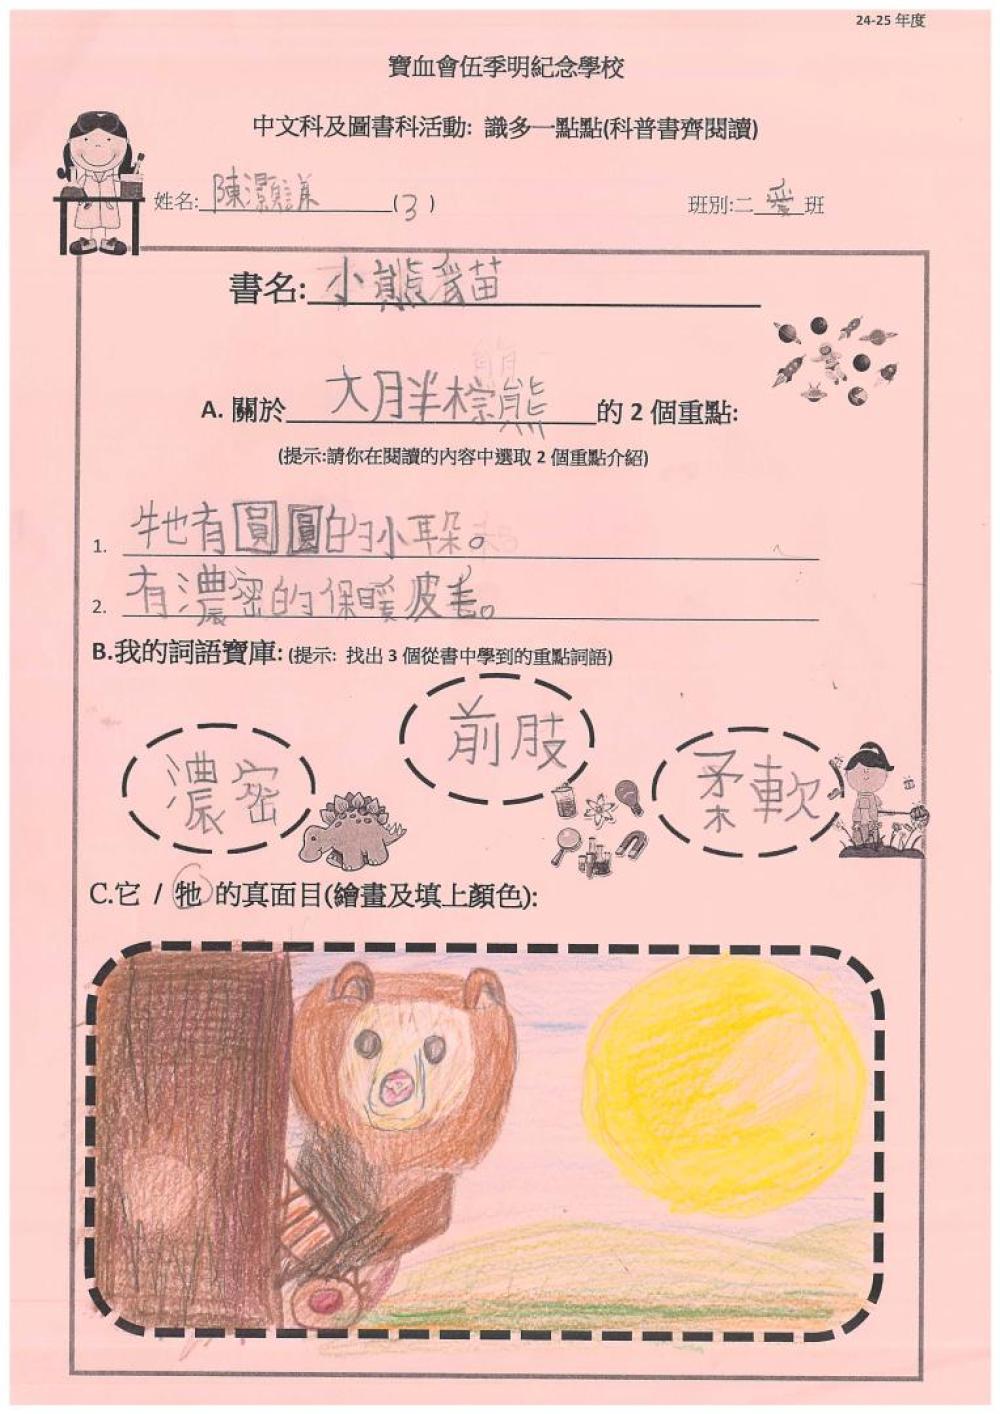 24-25 年度
寶血會伍季明紀念學校
中文科及圖書科活動: 識多一點點(科普書齊閱讀)
姓名: 陳灝謙 (3) 班別:二愛班
書名: 小熊貓
A. 關於 大胖棕熊 的 2 個重點:
(提示:請你在閱讀的內容中選取 2 個重點介紹)
1. 牠有圓圓的小耳朵。
2. 有濃密的保暖皮毛。
B.我的詞語寶庫: (提示: 找出 3 個從書中學到的重點詞語)
濃密 前肢 柔軟
C.它 / 牠 的真面目(繪畫及填上顏色):